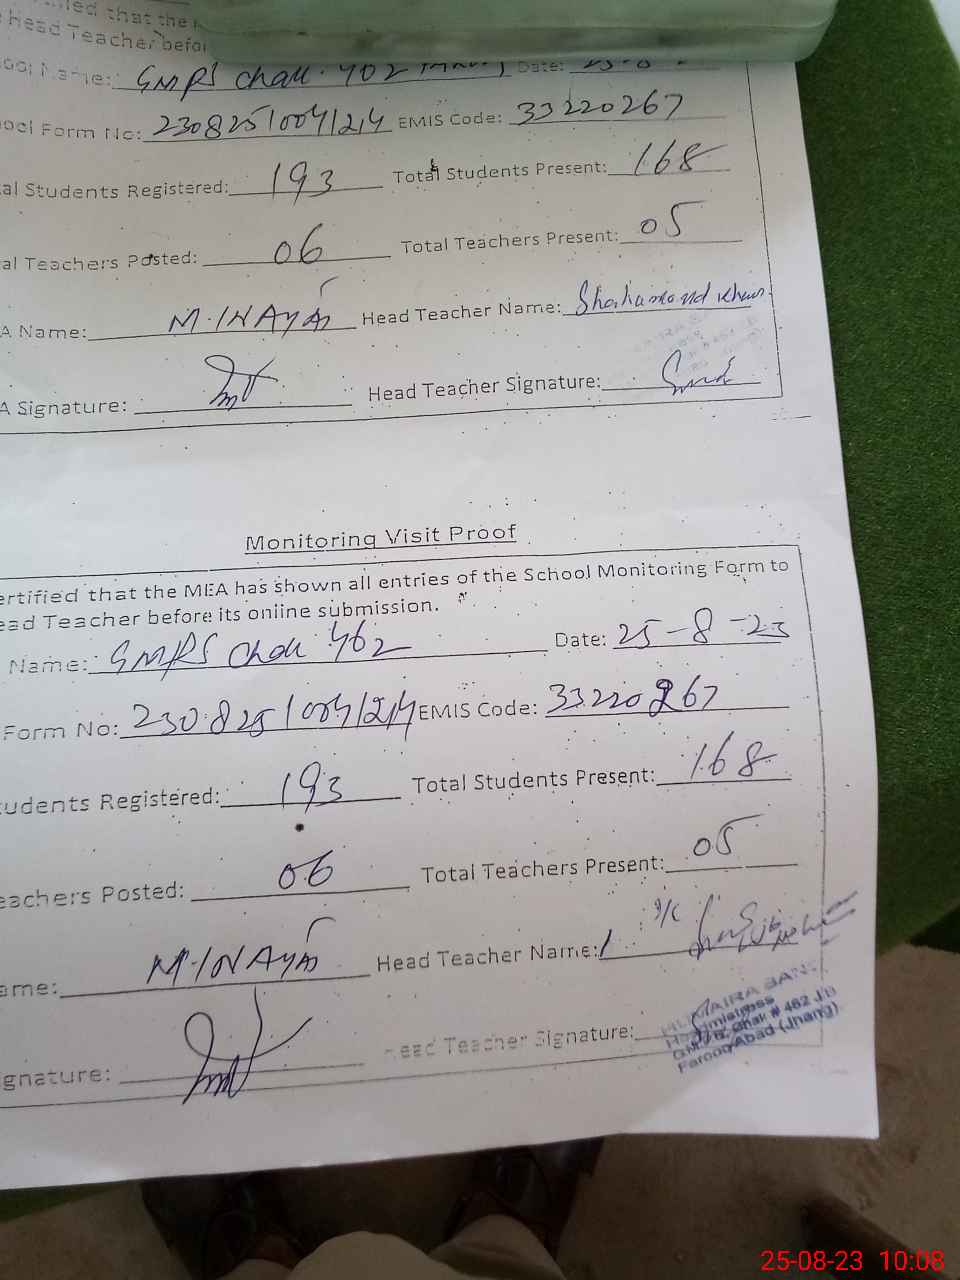 that the
Head Teacher befor
Name: GMPS Chak 462 Date: 25-8
Form No: 230825/0041214 EMIS Code: 33220267
al Students Registered: 193 Total Students Present: 168
al Teachers Posted: 06 Total Teachers Present: 05
A Name: M.INAYAT Head Teacher Name:
A Signature: Head Teacher Signature:
Monitoring Visit Proof
ertified that the MEA has shown all entries of the School Monitoring Form to
ead Teacher before its online submission.
Name: GMPS Chak 462 Date: 25-8-23
Form No: 230825/0041214 EMIS Code: 33220267
tudents Registered: 193 Total Students Present: 168
eachers Posted: 06 Total Teachers Present: 05
ame: M.INAYAT Head Teacher Name: I/C
gnature: Head Teacher Signature:
HUMAIRA BANO
Headmistress
Chak # 462 J/B
Farooq Abad (Jhang)
25-08-23 10:08